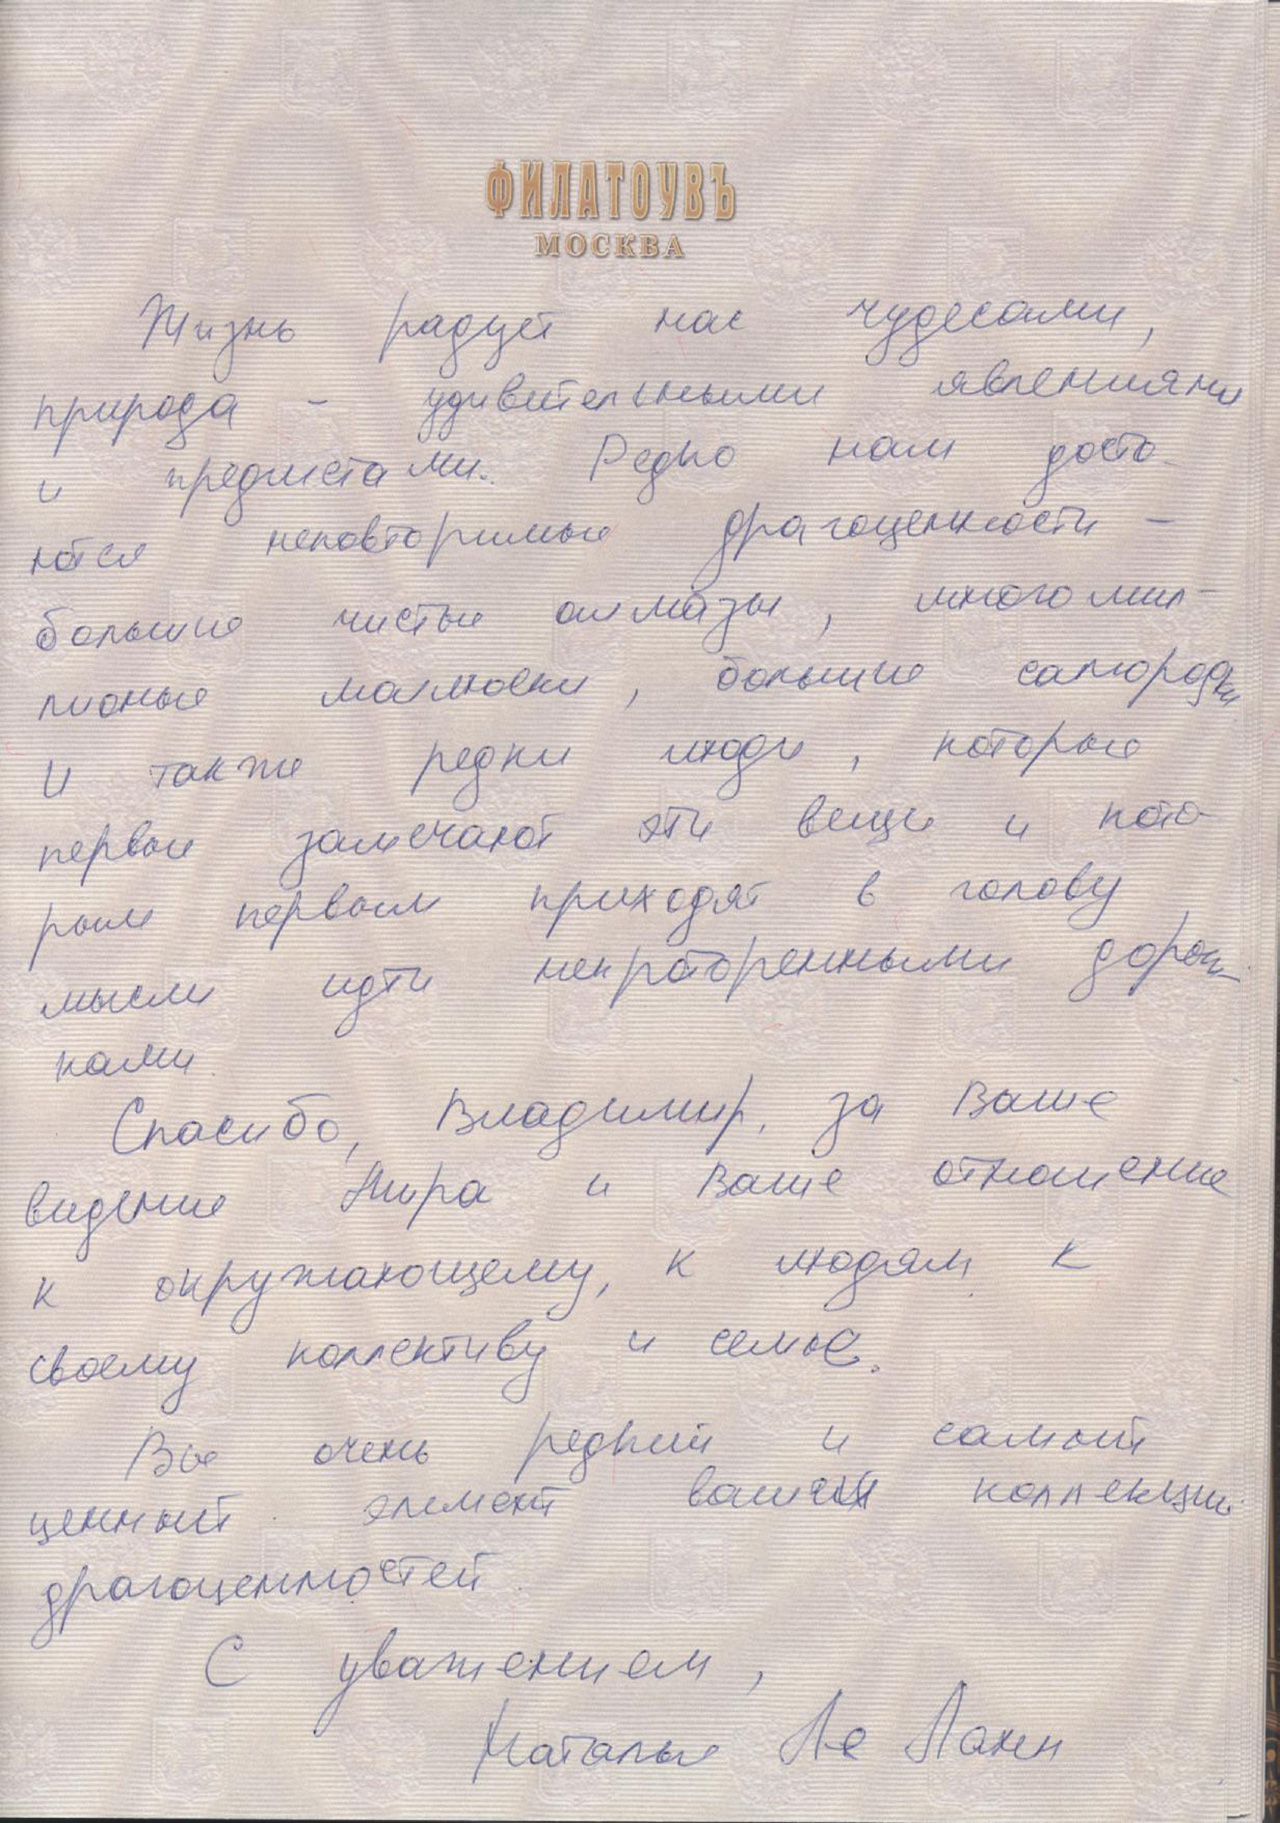 ФИЛАТОУВЪ
МОСКВА
Жизнь радует нас чудесами,
природа - удивительными явлениями
и предметами. Редко нам доста-
ются неповторимые драгоценности -
большие чистые алмазы, многомил-
лионые моллюски, большие самородки
И также редки люди, которые
первые замечают эти вещи и кото-
рым первым приходят в голову
мысли идти непроторенными дорож-
ками.
Спасибо, Владимир, за Ваше
видение Мира и Ваше отношение
к окружающему, к людям, к
своему коллективу и семье.
Вы очень редкий и самый
ценный элемент вашей коллекции
драгоценностей.
С уважением,
Наталья Ле